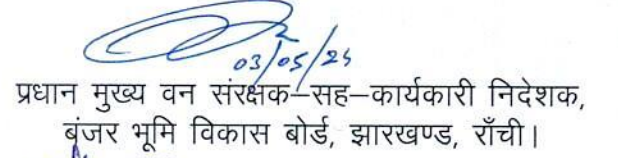 03/05/24
प्रधान मुख्य वन संरक्षक–सह–कार्यकारी निदेशक,
बंजर भूमि विकास बोर्ड, झारखण्ड, राँची।